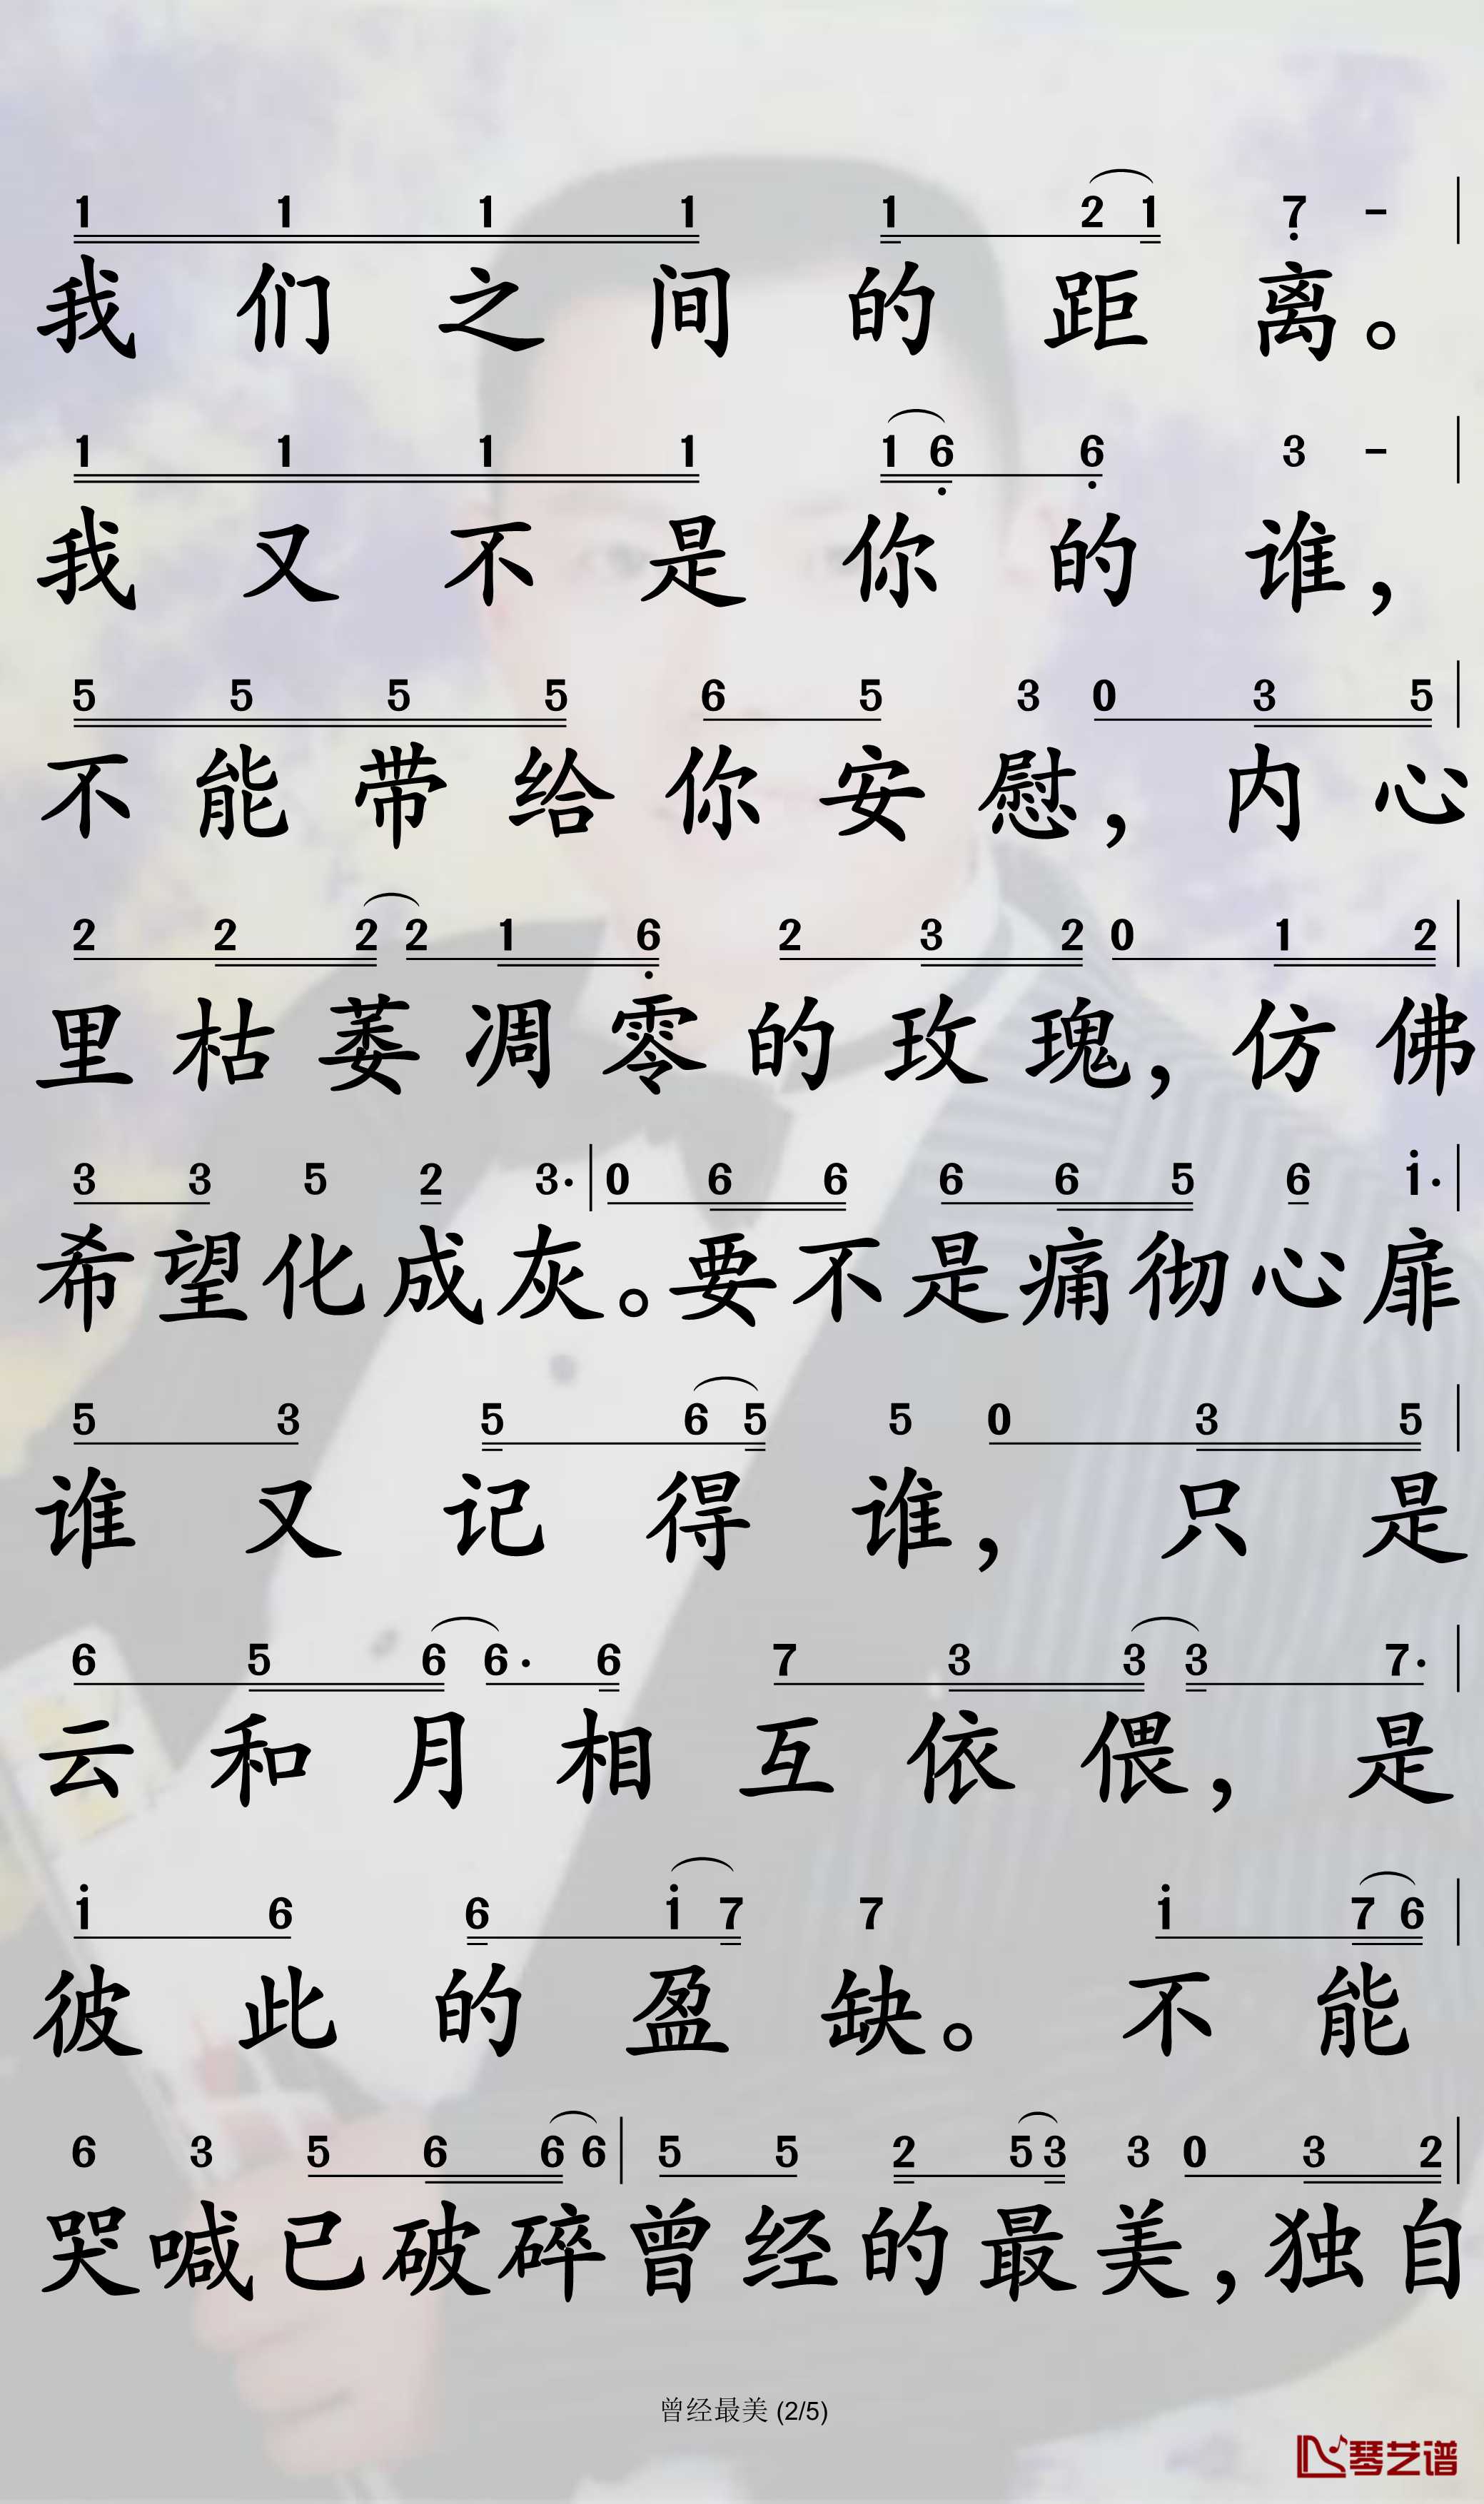 1 1 1 1 1 2 1 7 - |
我们之间的距离。
1 1 1 1 1 6 6 3 - |
我又不是你的谁，
5 5 5 5 6 5 3 0 3 5 |
不能带给你安慰，内心
2 2 2 2 1 6 2 3 2 0 1 2 |
里枯萎凋零的玫瑰，仿佛
3 3 5 2 3· | 0 6 6 6 6 5 6 i· |
希望化成灰。要不是痛彻心扉
5 3 5 6 5 5 0 3 5 |
谁又记得谁，只是
6 5 6 6· 6 7 3 3 3 7· |
云和月相互依偎，是
i 6 6 i 7 7 i 7 6 |
彼此的盈缺。不能
6 3 5 6 6 6 | 5 5 2 5 3 3 0 3 2 |
哭喊已破碎曾经的最美，独自
曾经最美 (2/5)
琴艺谱